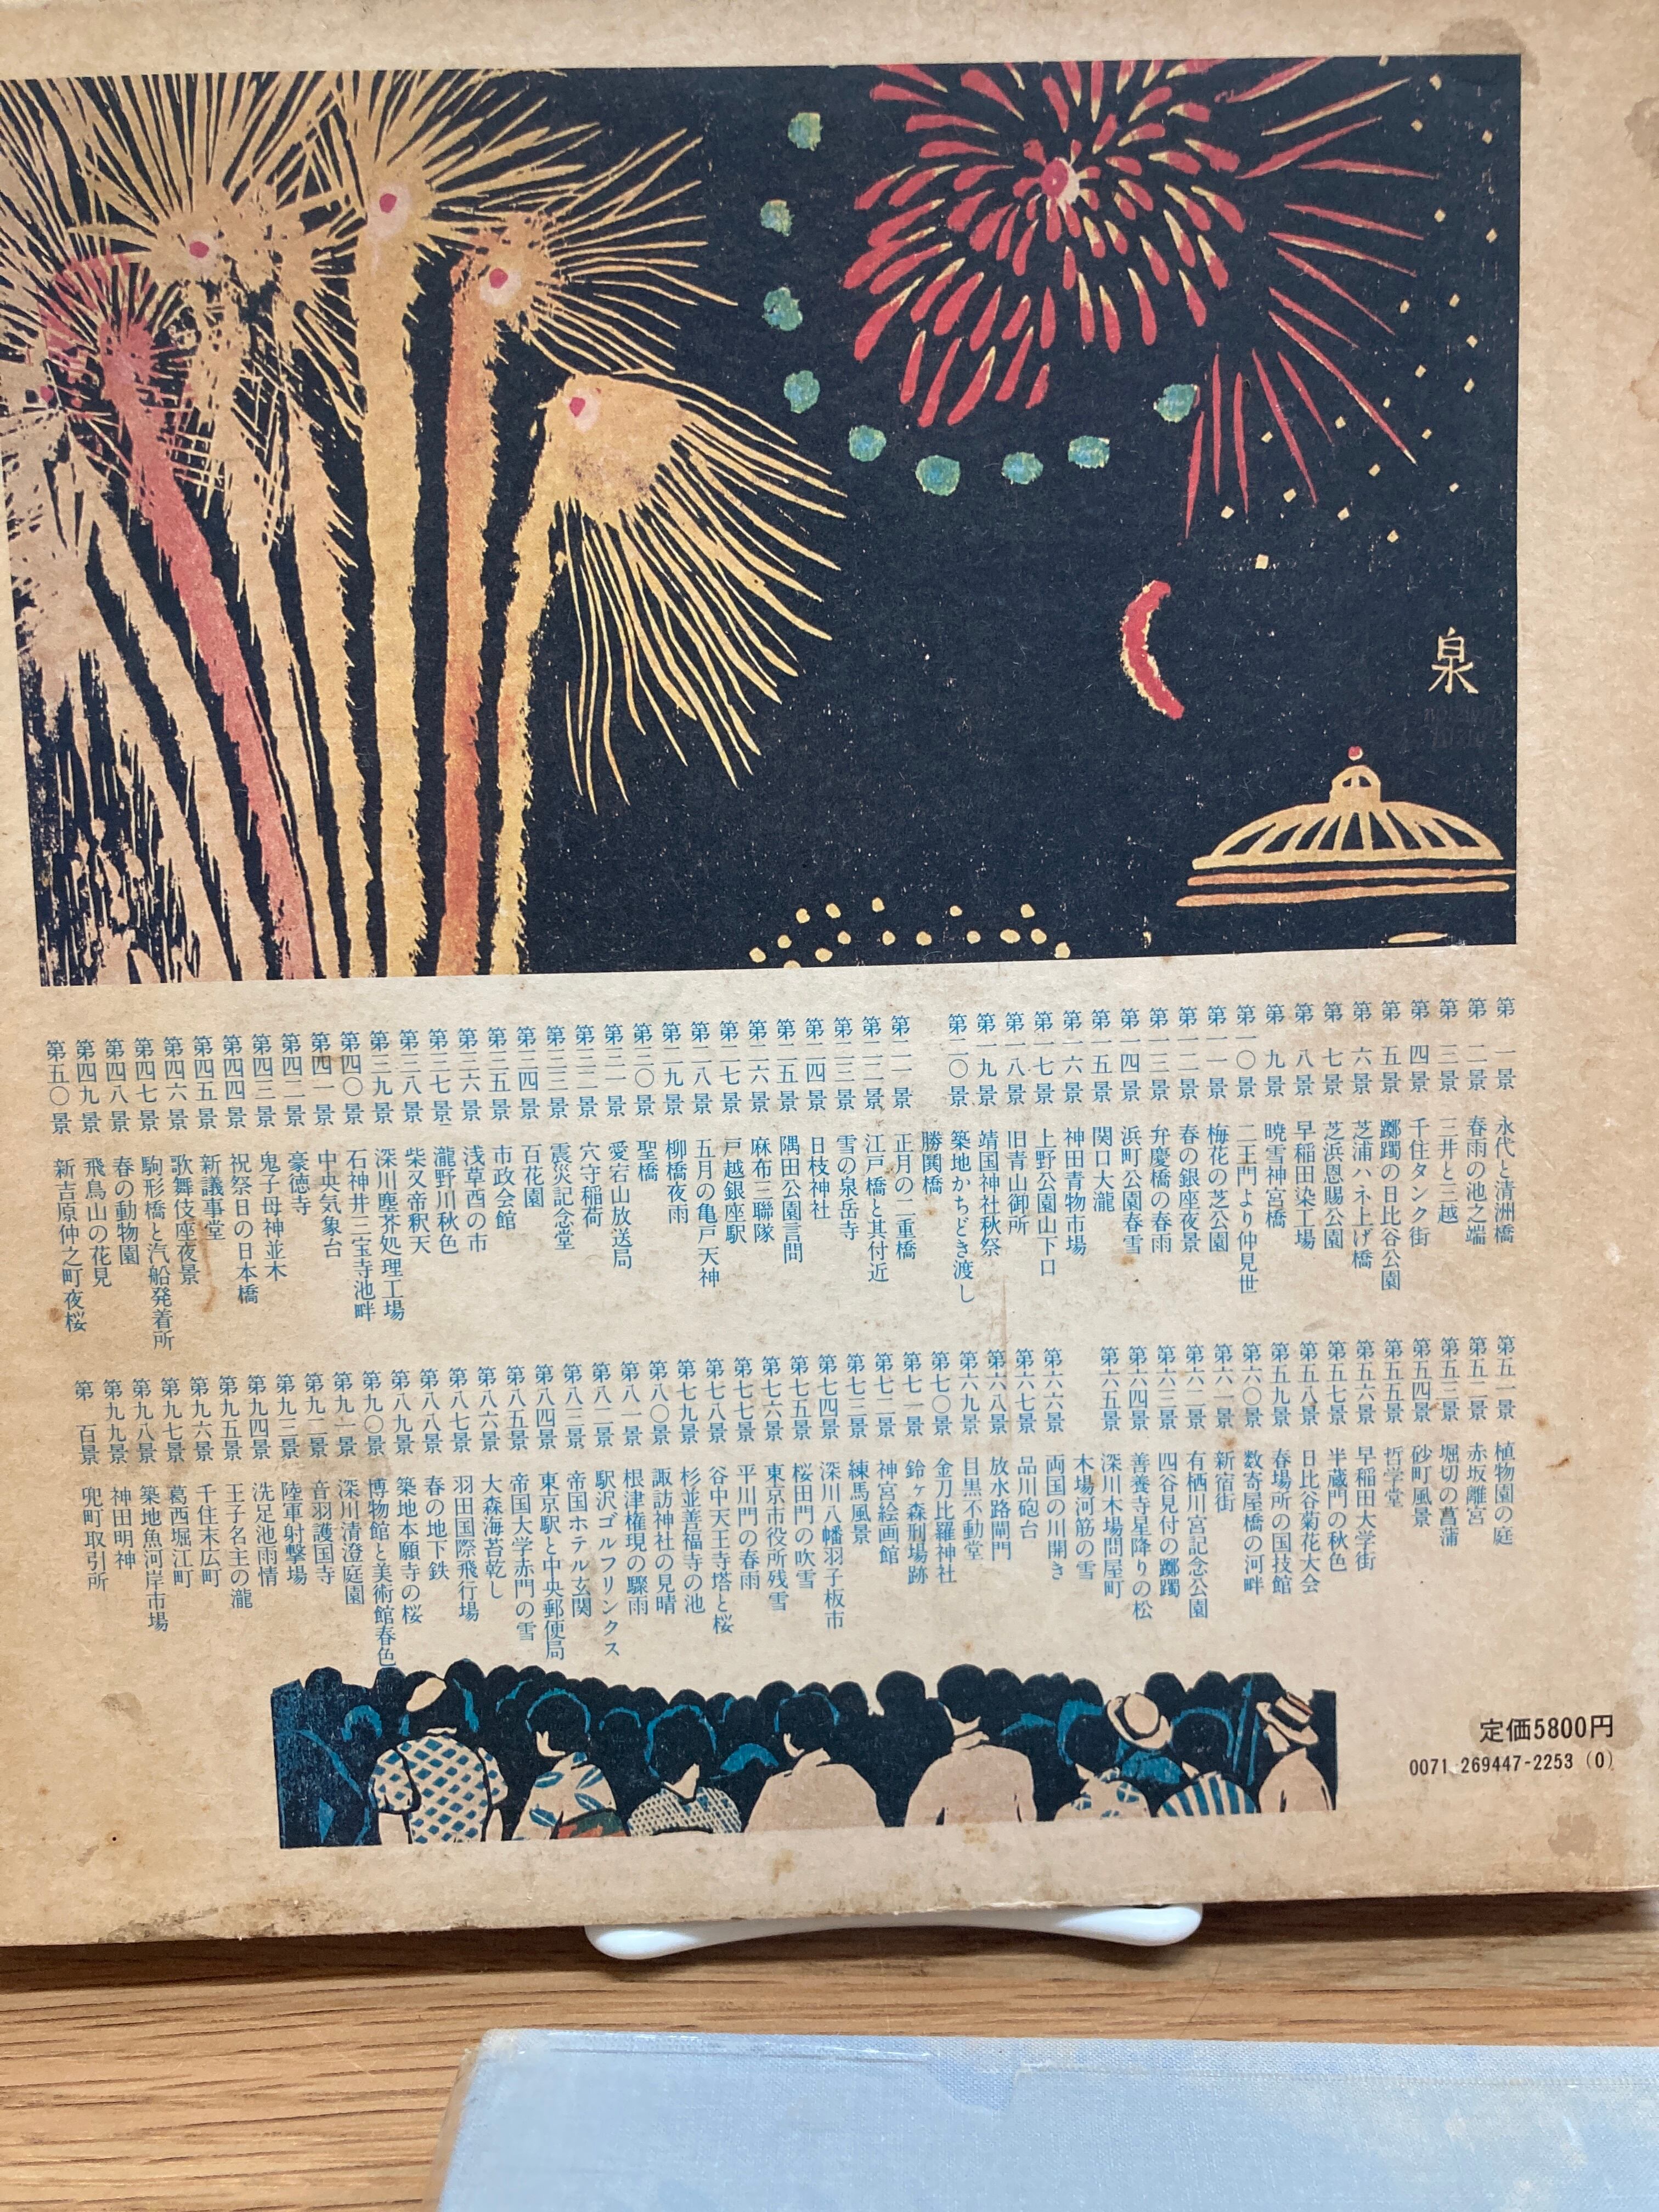 泉
第一景 永代と清洲橋
第二景 春雨の池之端
第三景 三井と三越
第四景 千住タンク街
第五景 躑躅の日比谷公園
第六景 芝浦ハネ上げ橋
第七景 芝浜恩賜公園
第八景 早稲田染工場
第九景 暁雪神宮橋
第一〇景 二王門より仲見世
第一一景 梅花の芝公園
第一二景 春の銀座夜景
第一三景 弁慶橋の春雨
第一四景 浜町公園春雪
第一五景 関口大瀧
第一六景 神田青物市場
第一七景 上野公園山下口
第一八景 旧青山御所
第一九景 靖国神社秋祭
第二〇景 築地かちどき渡し
勝関橋
第二一景 正月の二重橋
第二二景 江戸橋と其付近
第二三景 雪の泉岳寺
第二四景 日枝神社
第二五景 隅田公園言問
第二六景 麻布三聯隊
第二七景 戸越銀座駅
第二八景 五月の亀戸天神
第二九景 柳橋夜雨
第三〇景 聖橋
第三一景 愛宕山放送局
第三二景 穴守稲荷
第三三景 震災記念堂
第三四景 百花園
第三五景 市政会館
第三六景 浅草酉の市
第三七景 瀧野川秋色
第三八景 柴又帝釈天
第三九景 深川塵芥処理工場
第四〇景 石神井三宝寺池畔
第四一景 中央気象台
第四二景 豪徳寺
第四三景 鬼子母神並木
第四四景 祝祭日の日本橋
第四五景 新議事堂
第四六景 歌舞伎座夜景
第四七景 駒形橋と汽船発着所
第四八景 春の動物園
第四九景 飛鳥山の花見
第五〇景 新吉原仲之町夜桜
第五一景 植物園の庭
第五二景 赤坂離宮
第五三景 堀切の菖蒲
第五四景 砂町風景
第五五景 哲学堂
第五六景 早稲田大学街
第五七景 半蔵門の秋色
第五八景 日比谷菊花大会
第五九景 春場所の国技館
第六〇景 数寄屋橋の河畔
第六一景 新宿街
第六二景 有栖川宮記念公園
第六三景 四谷見付の躑躅
第六四景 善養寺星降りの松
第六五景 深川木場問屋町
木場河筋の雪
第六六景 両国の川開き
第六七景 品川砲台
第六八景 放水路閘門
第六九景 目黒不動堂
第七〇景 金刀比羅神社
第七一景 鈴ヶ森刑場跡
第七二景 神宮絵画館
第七三景 練馬風景
第七四景 深川八幡羽子板市
第七五景 桜田門の吹雪
第七六景 東京市役所残雪
第七七景 平川門の春雨
第七八景 谷中天王寺塔と桜
第七九景 杉並善福寺の池
第八〇景 諏訪神社の見晴
第八一景 根津権現の驟雨
第八二景 駅沢ゴルフリンクス
第八三景 帝国ホテル玄関
第八四景 東京駅と中央郵便局
第八五景 帝国大学赤門の雪
第八六景 大森海苔乾し
第八七景 羽田国際飛行場
第八八景 春の地下鉄
第八九景 築地本願寺の桜
第九〇景 博物館と美術館春色
第九一景 深川清澄庭園
第九二景 音羽護国寺
第九三景 陸軍射撃場
第九四景 洗足池雨情
第九五景 王子名主の瀧
第九六景 千住末広町
第九七景 葛西堀江町
第九八景 築地魚河岸市場
第九九景 神田明神
第百景 兜町取引所
定価5800円
0071-269447-2253 (0)